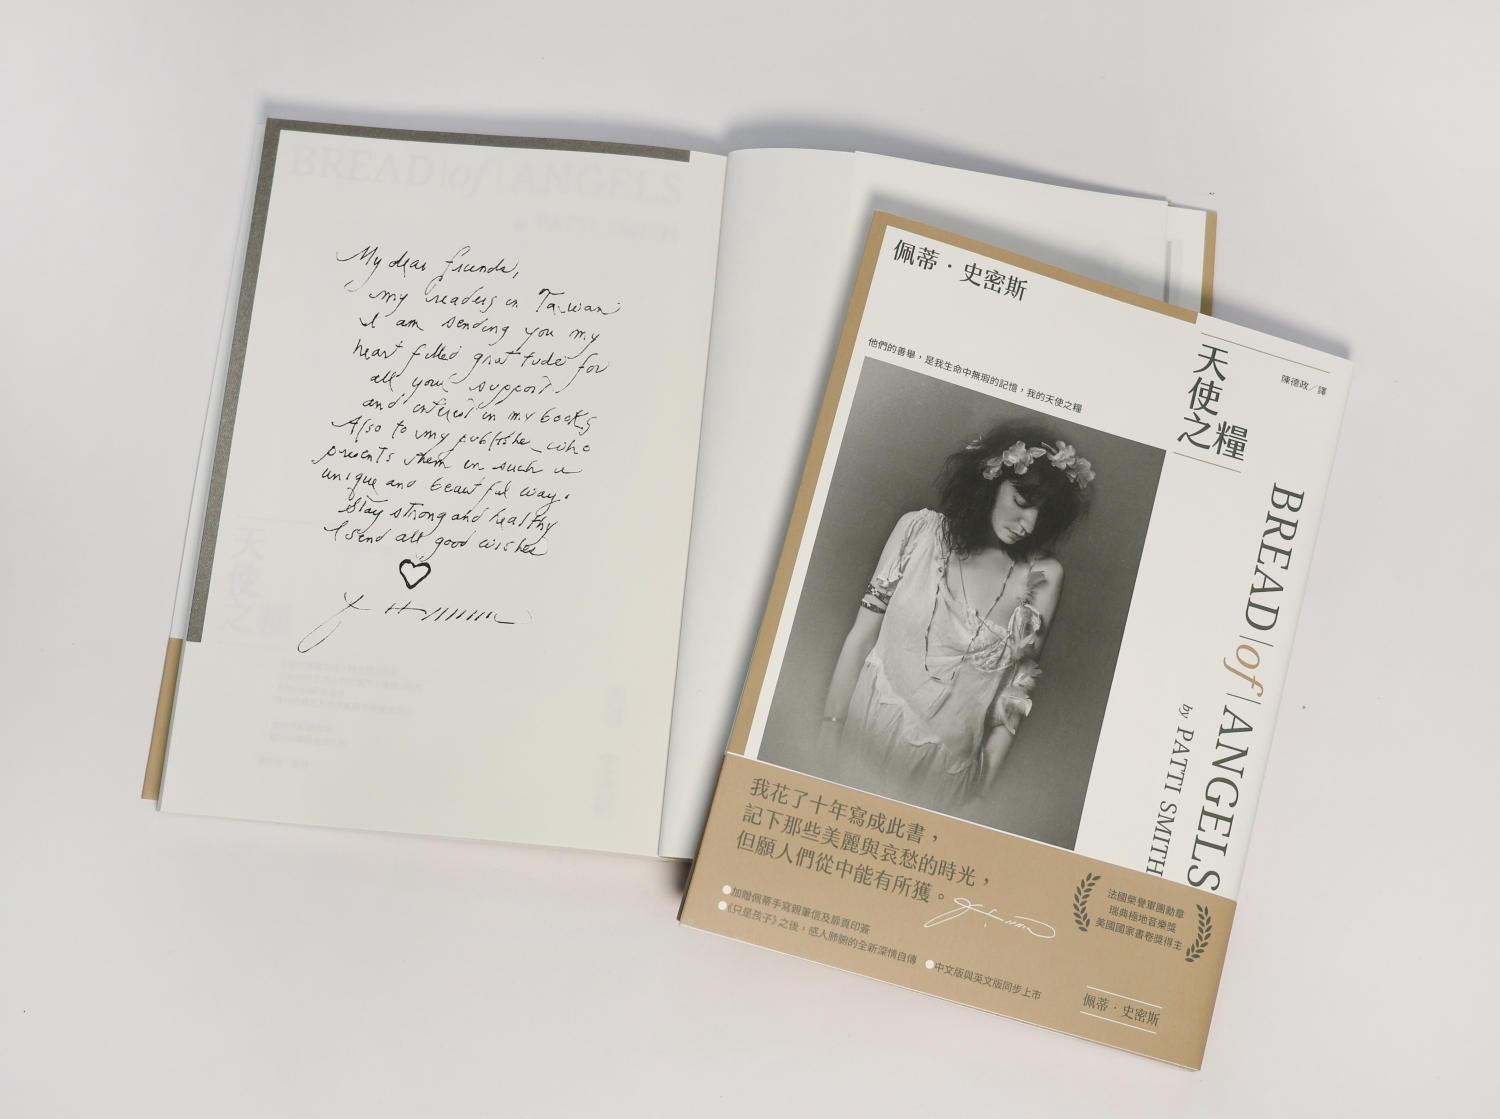 My dear friends,
my readers in Taiwan
I am sending you my
heart filled gratitude for
all your support
and interest in my books
Also to my publisher who
presents them in such a
unique and beautiful way.
Stay strong and healthy
I send all good wishes
BREAD|of|ANGELS
PATTI SMITH
天使之糧
佩蒂・史密斯
他們的善舉,是我生命中無瑕的記憶,我的天使之糧
天使之糧
陳德政/譯
BREAD|of|ANGELS
by PATTI SMITH
我花了十年寫成此書,
記下那些美麗與哀愁的時光,
但願人們從中能有所獲。
●加贈佩蒂手寫親筆信及扉頁印簽
●《只是孩子》之後,感人肺腑的全新深情自傳
●中文版與英文版同步上市
法國榮譽軍團勳章
瑞典極地音樂獎
美國國家書卷獎得主
佩蒂・史密斯